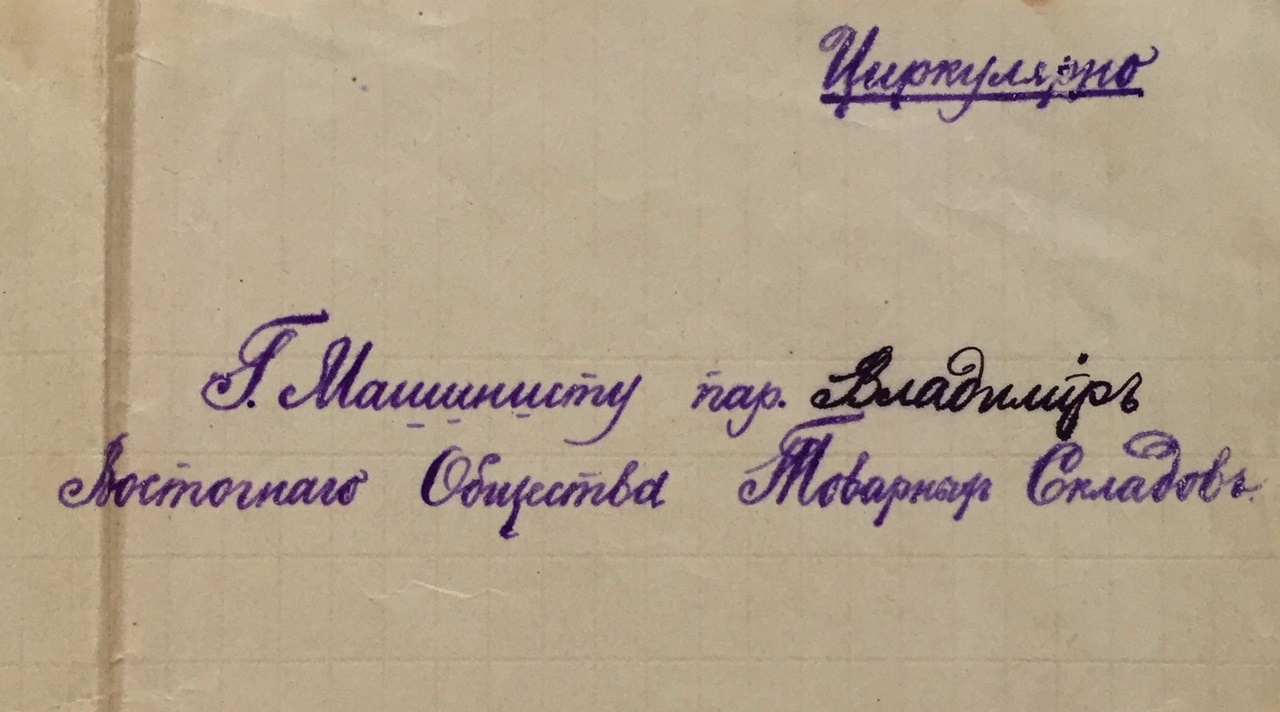 Циркулярно
Г. Машинисту пар. Владимiръ
Восточнаго Общества Товарныхъ Складовъ